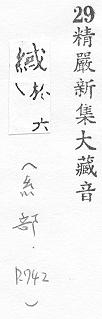 29精嚴新集大藏音
緎於六
（糸部．
P.742
）